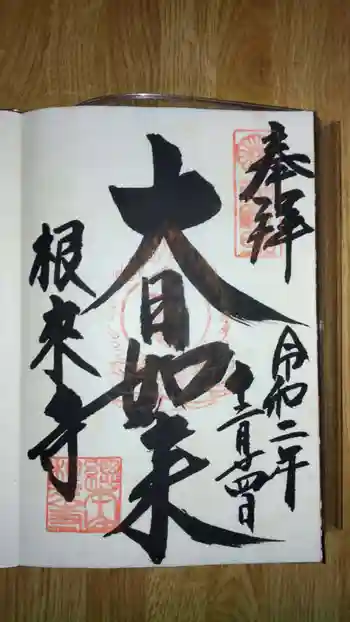 奉拝
令和二年
十二月廿四日
大日如来
根来寺